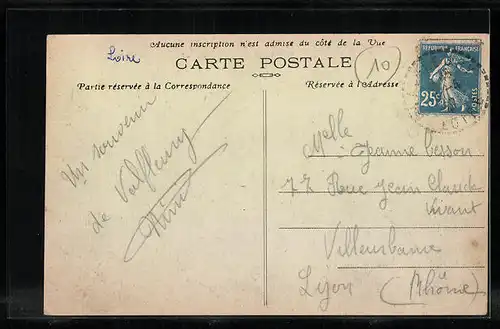 Loire
Aucune inscription n'est admise du côté de la Vue
CARTE POSTALE
10
Partie réservée à la Correspondance
Réservée à l'Adresse
REPUBLIQUE FRANÇAISE
25c
POSTES
Un souvenir
de Valfleury
Melle Jeanne Besson
77 Rue Jean Claude
Vivant
Villeurbanne
Lyon (Rhône)